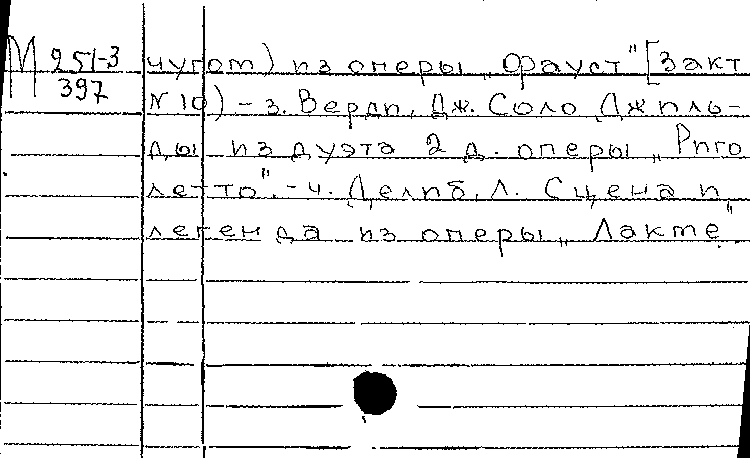 М 251-3
397
чугом) из оперы „Фауст" [3 акт
N 10) - 3. Верди, Дж. Соло Джиль-
ды из дуэта 2 д. оперы „Риго
летто". - 4. Делиб, Л. Сцена и
легенда из оперы „Лакме"